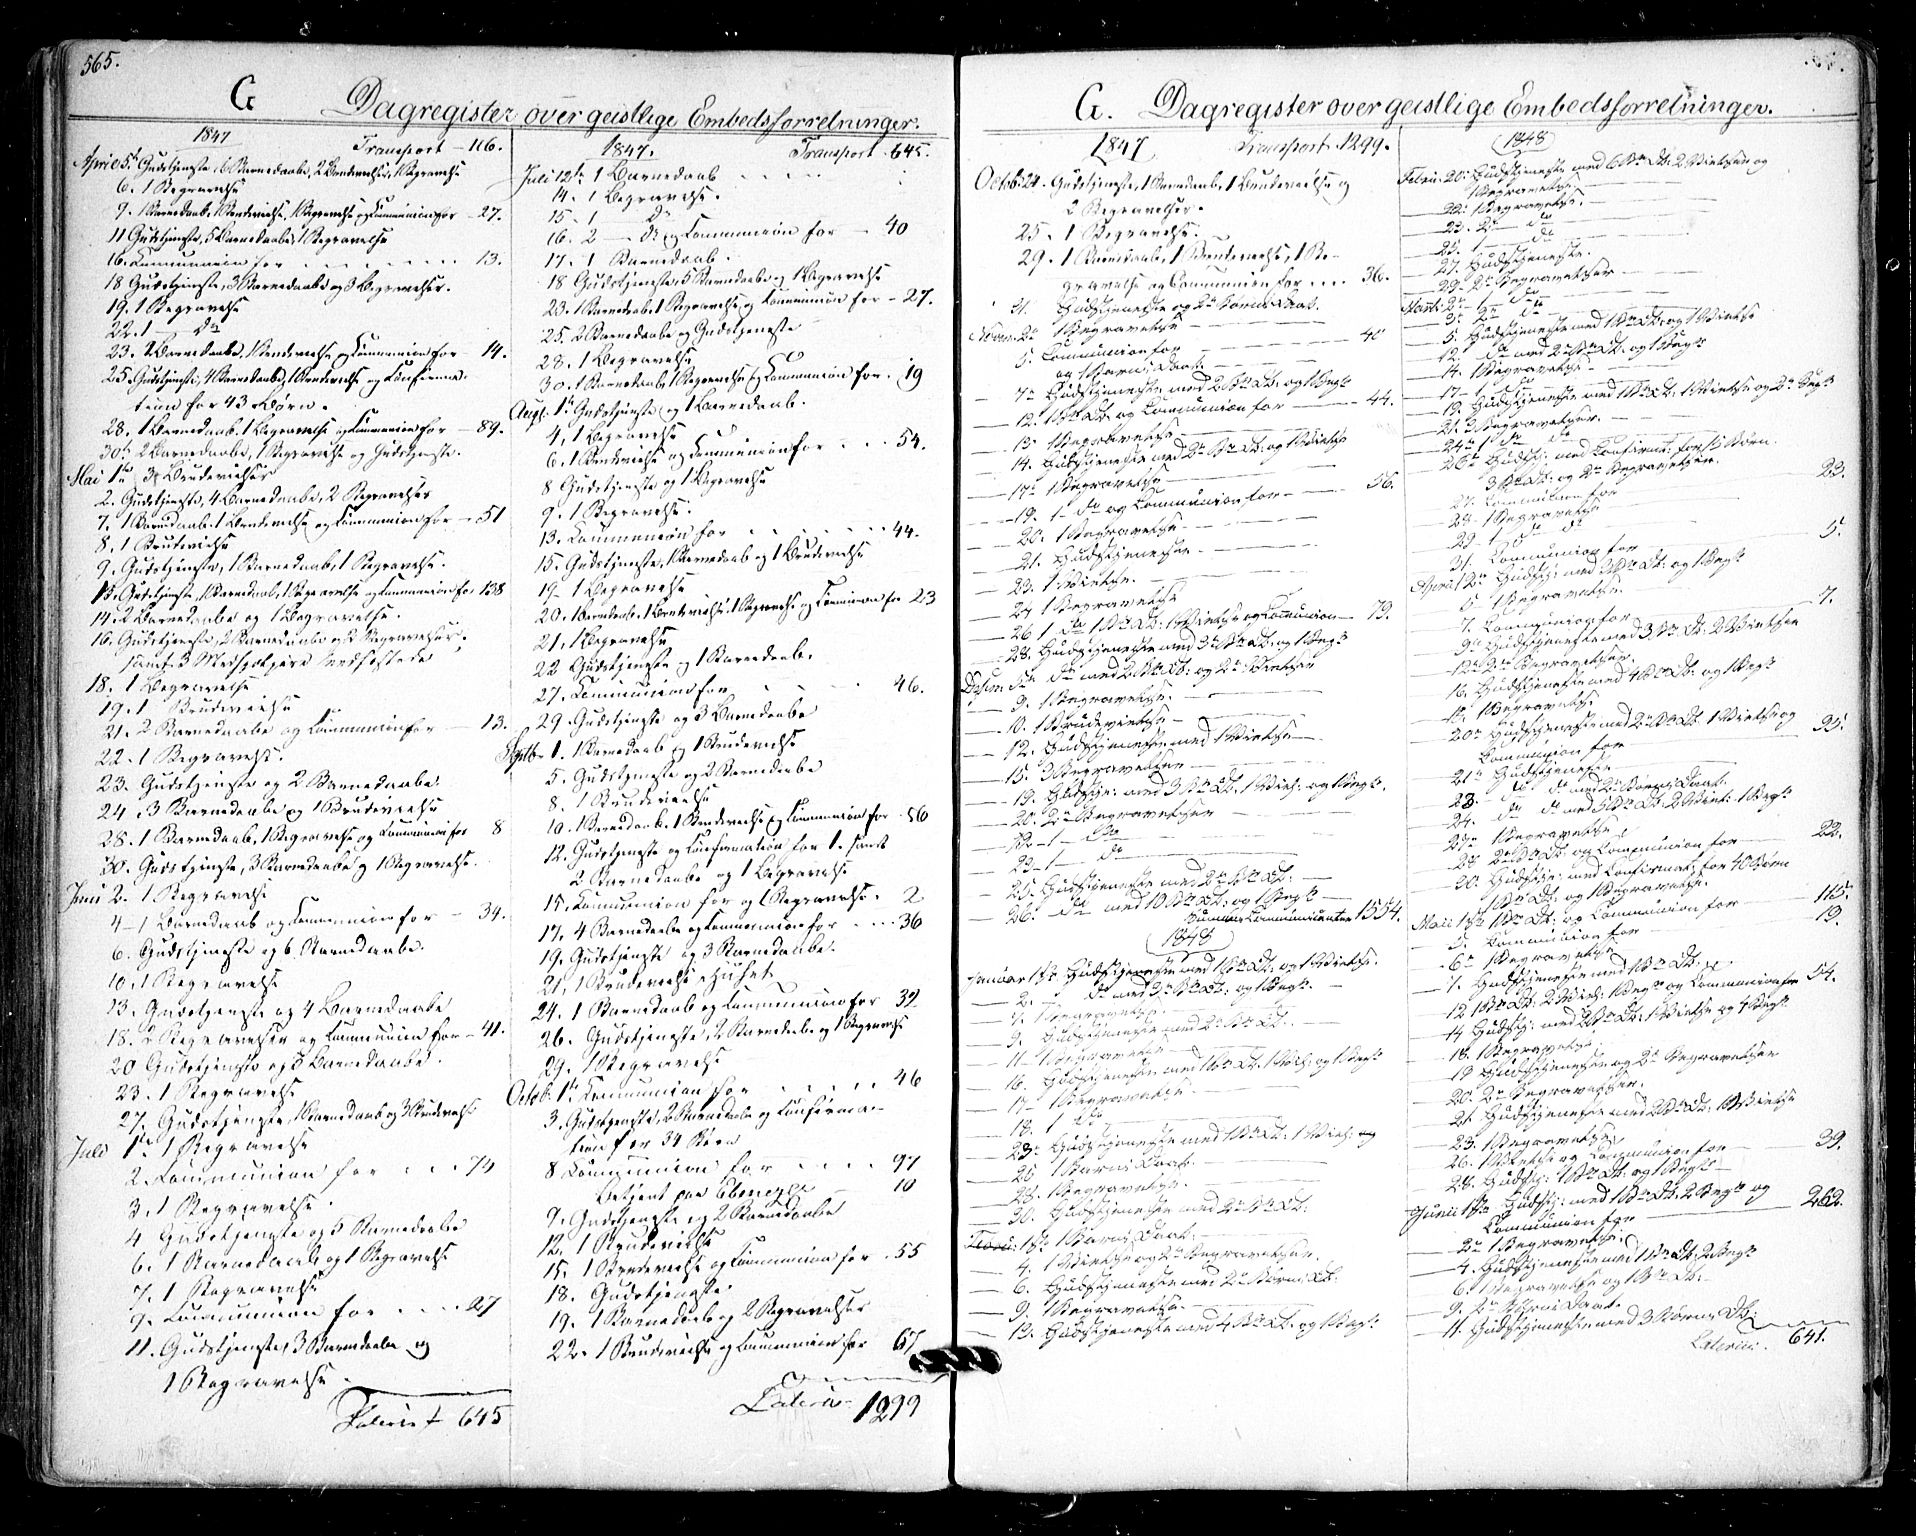 565.
G Dagregister over geistlige Embedsforretninger.
1847 Transport - 116.
April 5te Gudstjeneste, 6 Barnedaabe, 2 Brudevielser, 1 Begravelse
6. 1 Begravelse
9. 1 Barnedaab, 1 Brudevielse, 1 Begravelse og Communion for - 27.
11 Gudstjeneste, 5 Barnedaabe, 1 Begravelse
16. Communion for 13.
18 Gudstjeneste, 3 Barnedaabe og 3 Begravelser.
19. 1 Begravelse
22. 1 - do
23. 2 Barnedaabe, 1 Brudevielse og Communion for 14.
25. Gudstjeneste, 4 Barnedaabe, 1 Brudevielse og Confirma-
tion for 43 Børn.
28. 1 Barnedaab. 1 Begravelse og Communion for - 89.
30. 2 Barnedaabe, 1 Begravelse og Gudstjeneste.
Mai 1te 3 Brudevielser
2. Gudstjeneste, 4 Barnedaabe, 2 Begravelser
7. 1 Barnedaab. 1 Brudevielse og Communion for - 51
8. 1 Brudevielse
9. Gudstjeneste, 1 Barnedaab, 1 Begravelse.
13. Gudstjeneste, 1 Barnedaab, 1 Begravelse og Communion for 138
14. 2 Barnedaabe og 1 Begravelse.
16. Gudstjeneste, 2 Barnedaabe og 2 Begravelser,
samt 3
18. 1 Begravelse
19. 1 Brudevielse
21. 2 Barnedaabe og Communion for - 13.
22. 1 Begravelse.
23. Gudstjeneste og 2 Barnedaabe.
24. 3 Barnedaabe og 1 Brudevielse
28. 1 Barnedaab, 1 Begravelse og Communion for 8
30. Gudstjeneste, 3 Barnedaabe og 1 Begravelse.
Juni 2. 1 Begravelse
4 - 1 Barnedaab og Communion for - 34.
6. Gudstjeneste og 6 Barnedaabe.
10. 1 Begravelse
13. Gudstjeneste og 4 Barnedaabe
18. 2 Begravelser og Communion for - 41.
20 Gudstjeneste og 3 Barnedaabe.
23. 1 Begravelse
27. Gudstjeneste, 1 Barnedaab og 3 Brudevielser
Juli 1te 1 Begravelse
2. Communion for 74
3. 1 Begravelse.
4 Gudstjeneste og 5 Barnedaabe
6. 1 Barnedaab og 1 Begravelse
7. 1 Begravelse
9. Communion for 27
11. Gudstjeneste, 3 Barnedaabe og
1 Begravelse.
Lateris 645
1847. Transport 645.
Juli 12te 1 Barnedaab
14. 1 Begravelse.
15. 1 do
16. 2 - do og Communion for - 40
17. 1 Barnedaab.
18 Gudstjeneste, 5 Barnedaabe og 1 Begravelse
23. 1 Barnedaab, 1 Begravelse og Communion for - 27.
25. 2 Barnedaabe og Gudstjeneste
28. 1 Begravelse
30. 1 Barnedaab, 1 Begravelse og Communion for. 19
Augs. 1te Gudstjeneste og 1 Barnedaab.
4. 1 Begravelse
6. 1 Brudevielse og Communion for 54.
8 Gudstjeneste og 1 Begravelse
9. 1 Begravelse.
13. Communion for 44.
15. Gudstjeneste, 1 Barnedaab og 1 Brudevielse
19. 1 Begravelse
20. 1 Barnedaab, 1 Brudevielse, 1 Begravelse og Communion for 23
21. 1 Begravelse
22 Gudstjeneste og 1 Barnedaab.
27. Communion for 46.
29. Gudstjeneste og 3 Barnedaabe
Septbr 1. 1 Barnedaab og 1 Brudevielse
5. Gudstjeneste og 2 Barnedaabe
8. 1 Brudevielse
10. 1 Barnedaab. 1 Brudevielse og Communion for - 56
12. Gudstjeneste og Confirmation for 1. samt
2 Barnedaabe og 1 Begravelse
15. Communion for og 1 Begravelse. 2
17. 4 Barnedaabe og Communion for 36
19. Gudstjeneste og 3 Barnedaabe.
21. 1 Brudevielse i Huset
24. 1 Barnedaab og Communion for 32
26. Gudstjeneste, 2 Barnedaabe og 1 Begravelse
29. 1 Begravelse
Octob. 1te Communion for 46
3. Gudstjeneste, 2 Barnedaabe og Confirma-
tion for 34 Børn
8 Communion for 97
Betjent paa Ebenezer 10
9. Gudstjeneste og 2 Barnedaabe
12. 1 Brudevielse
15. 1 Brudevielse og Communion for . 55
18. Gudstjeneste.
19. 1 Barnedaab og 2 Begravelser
22. 1 Brudevielse og Communion for 67
Lateris 1299
G. Dagregister over geistlige Embedsforretninger.
1847 Transport. 1299.
Octob: 24. Gudstjeneste, 1 Barnedaab, 1 Brudevielse og
2 Begravelser.
25. 1 Begravelse.
29. 1 Barnedaab, 1 Brudevielse, 1 Be-
gravelse og Communion for 36.
31. Gudstjeneste og 2de Børns Daab.
Novem: 2de 1 Begravelse
5. Communion for 40
og 1 Barns Daab.
7de Gudstjeneste med 2 Bns Db: og 1 Begr:
12. 1 Bns Db: og Communion for 44.
13. 1 Begravelse.
14. Gudstjeneste med 2de Bns Db: og 1 Vielse
17de 1 Begravelse
19. 1 - do og Communion for 56.
20. 1 Begravelse.
21. Gudstjeneste.
23. 1 Vielse.
24 1 Begravelse
26 1 do 1 Bns Db: 1 Vielse og Communion 79.
28. Gudstjeneste med 3 Bns Db: og 1 Begr:
Decem: 5te do med 2 Bns Db: og 2de Vielser
9. 1 Begravelse.
10. 1 Brudevielse
12. Gudstjeneste med 1 Vielse
15. 3 Begravelser
19. Gudstje: med 3 Bns Db: 1 Viel: og 1 Begr.
20. 2de Begravelser
22 - 1 - do
23 - 1 - do
25. Gudstjeneste med 2de Bns Db:
26. do med 10 Bns Db: og 1 Begr:
Summa Communicanter 1554.
1848
Januar 1ste Gudstjeneste med 1 Bns Db: og 1 Vielse.
2. do med 3 Bns Db: og 1 Begr:
7. 1 Begravelse.
9. Gudstjeneste med 2de Bns Db:
11. 1 Begravelse
16. Gudstjeneste med 1 Bns Db: 1 Viel: og 1 Begr:
17 - 1 Begravelse.
18. 1 do
23. Gudstjeneste med 1 Bns Db: 1 Viel: og
25 1 Barns Daab.
28. 1 Begravelse.
30. Gudstjeneste med 2de Bns Db:
Febru: 1ste 1 Barns Daab.
4. 1 Vielse og 2de Begravelser.
6. Gudstjeneste med 2de Børns Db:
9. 1 Begravelse.
13. Gudstjeneste med 4 Bns Db: og 1 Begr:
1848
Febru: 20. Gudstjeneste med 6 Bns Db: 2 Vielser og
1 Begravelse
22. 1 Begravelse.
23. 2de do
25. 1 - do
27. Gudstjeneste.
29. 2de Begravelser
Marti 2de 1 - do
3. 2de do
5. Gudstjeneste med 1 Bns Db: og 1 Vielse
12. do med 2de Bns Db: og 1 Begr:
14. 1 Begravelse
17 - 1 do
19. Gudstjeneste med 1 Bns Db: 1 Vielse og 2de Begr:
21. 3 Begravelser.
24de 1 do
26. Gudstj: med Confirmat: for 15 Børn
3 Bns Db: og 2de Begravelser.
27. Communion for 23.
28. 1 Begravelse
29. 1 do
31. Communion for 5.
April 2de Gudstj: med 3 Bns Db: og 1 Begr:
5 - 1 Begravelse.
7. Communion for 7.
9de Gudstjeneste med 3 Bns Db: 2 Vielser
12te 2de Begravelser.
16. Gudstjeneste med 4 Bns Db: og 1 Begr:
18. 1 Begravelse.
20de Gudstjeneste med 2de Bns Db: 1 Vielse og
Communion for 95.
21de Gudstjeneste
23. do med 2de Børns Daab.
24. do med 5 Bns Db: 2 Viel: 1 Begr:
27de 1 Begravelse
28 2de Bns Db: og Communion for 22.
30. Gudstje: med Confirmat: for 40 Børn
1 Bns Db: og 1 Begravelse.
Maii 1ste 1 Bns Db: og Communion for 115.
5. Communion for 19.
6te 1 Begravelse.
7. Gudstjeneste med 1 Bns Db:
12 1 Bns Db: 2 Viel: 1 Begr: og Communion for 54.
14 Gudstj: med 2 Bns Db: 1 Vielse og 4 Begr:
18. 1 Begravelse
19 Gudstjeneste og 2de Begravelser
20. 2de Begravelser.
21. Gudstjeneste med 2 Bns Db: 1 Vielse
23. 1 Begravelse.
26. 1 Vielse og Communion for 39.
28. Gudstj: 1 Bns Db: og 1 Begr:
Junii 1ste Gudstj: med 1 Bns Db: 2 Begr: og
Communion for 262.
2de 1 Begravelse.
4. Gudstjeneste med 1 Bns Db: 2 Begr:
6. 1 Begravelse og 1 Bns Db:
9. 2de Børns Daab.
11. Gudstjeneste med 3 Børns Db:
Lateris: 641.